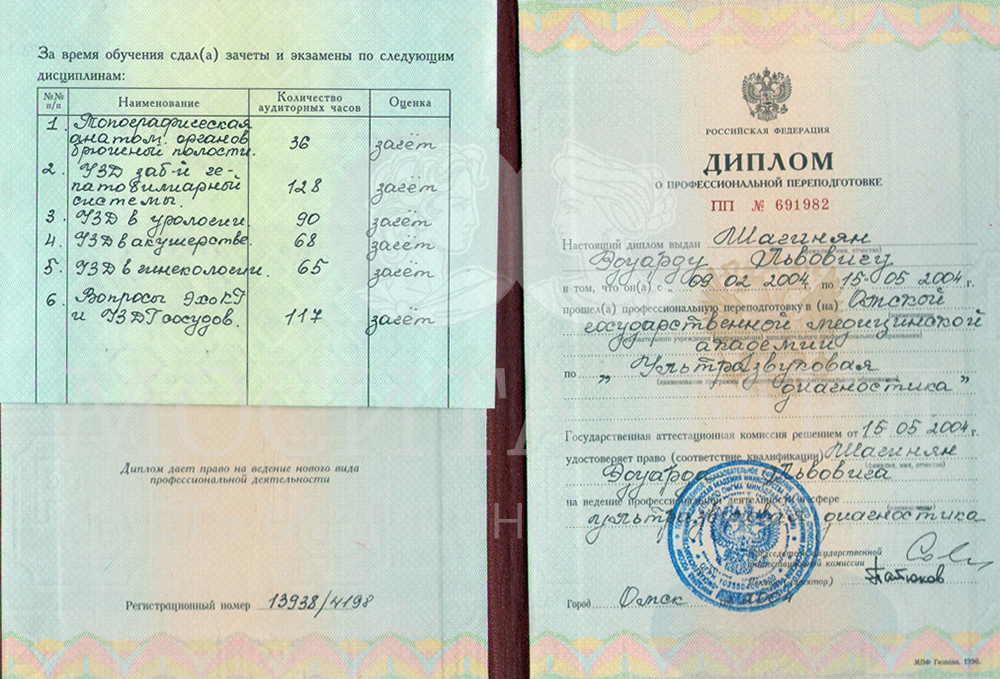 За время обучения сдал(а) зачеты и экзамены по следующим
дисциплинам:
№№ п/п Наименование Количество аудиторных часов Оценка
1. Топографическая
анатом. органов
брюшной полости. 36 зачёт
2. УЗД заб-й ге-
патобилиарный
системы. 128 зачёт
3. УЗД в урологии. 90 зачёт
4. УЗД в акушерстве. 68 зачёт
5. УЗД в гинекологии. 65 зачёт
6. Вопросы ЭхоКГ
и УЗДГ сосудов. 117 зачёт
Диплом дает право на ведение нового вида
профессиональной деятельности
Регистрационный номер 13938/4198
РОССИЙСКАЯ ФЕДЕРАЦИЯ
ДИПЛОМ
О ПРОФЕССИОНАЛЬНОЙ ПЕРЕПОДГОТОВКЕ
ПП № 691982
Настоящий диплом выдан Шагинян
Эдуарду Львовичу
в том, что он(а) с „ 09 02 2004 по 15·05 2004 г.
прошел(а) профессиональную переподготовку в (на) Омской
государственной медицинской
академии
по „ Ультразвуковая
диагностика"
Государственная аттестационная комиссия решением от 15·05 2004 г.
удостоверяет право (соответствие квалификации) Шагинян
(фамилия, имя, отчество)
Эдуарда Львовича
на ведение профессиональной деятельности в сфере
ультразвуковая диагностика
Председатель государственной
аттестационной комиссии
Патюков
Город Омск 2004
МПФ Гознака. 1996.